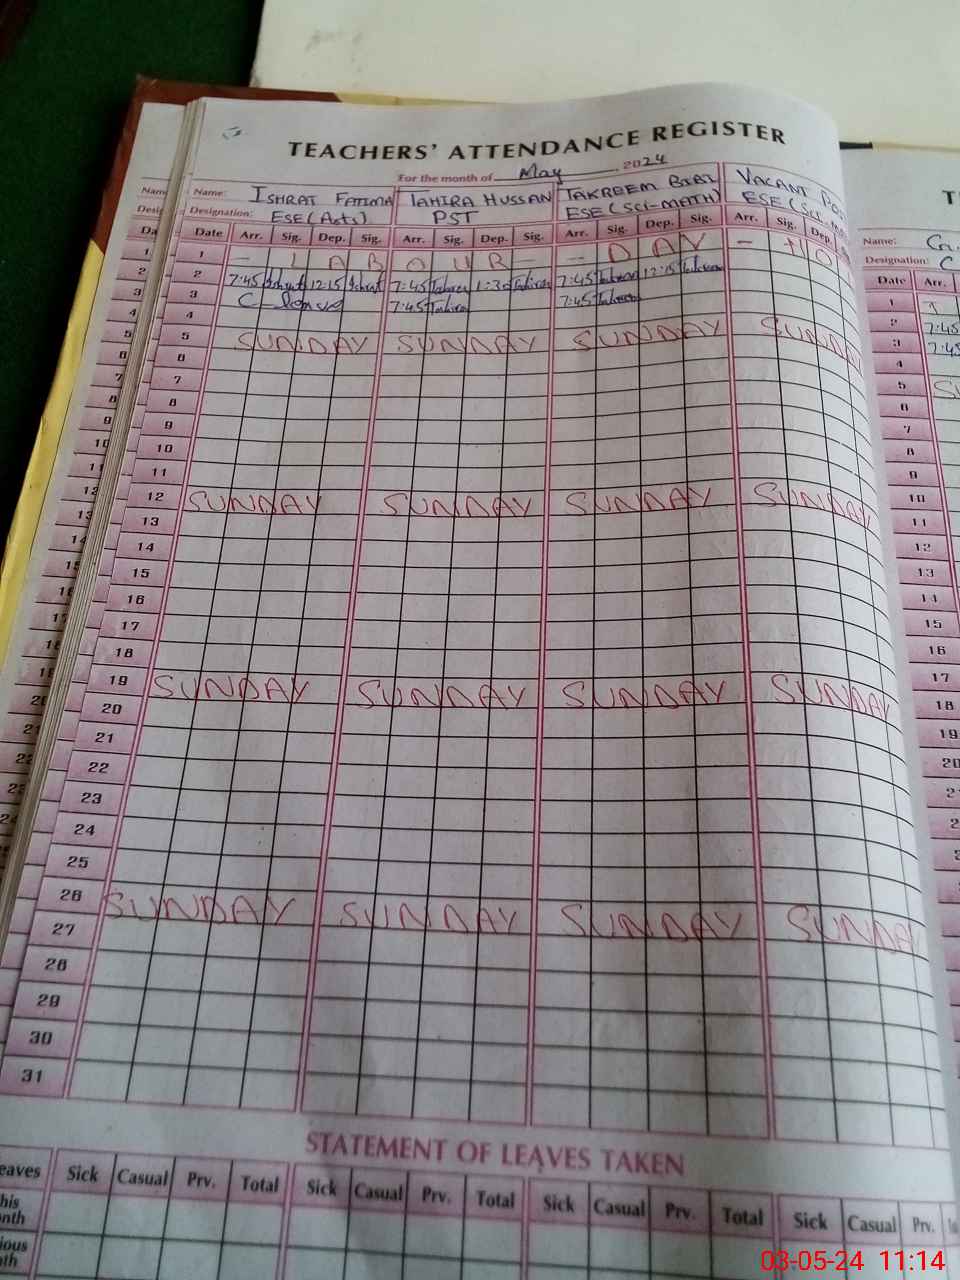 TEACHERS' ATTENDANCE REGISTER
For the month of May 2024
Name: ISHRAT FATIMA TAHIRA HUSSAN TAKREEM BIBI VACANT
Designation: ESE (Arts) PST ESE (SCI-MATH) ESE (SCI-
Date Arr. Sig. Dep. Sig. Arr. Sig. Dep. Sig. Arr. Sig. Dep. Sig. Arr. Sig. Dep.
1 - L A B O U R - - D A Y - H O
2 7:45 Ishrat 12:15 Ishrat 7:45 Tahira 1:30 Tahira 7:45 Takreem 12:15 Takreem
3 C-leave 7:45 Tahira 7:45 Takreem
4
5 SUNDAY SUNDAY SUNDAY SUNDAY
6
7
8
9
10
11
12 SUNDAY SUNDAY SUNDAY SUNDAY
13
14
15
16
17
18
19 SUNDAY SUNDAY SUNDAY SUNDAY
20
21
22
23
24
25
26 SUNDAY SUNDAY SUNDAY SUNDAY
27
28
29
30
31
STATEMENT OF LEAVES TAKEN
Sick Casual Prv. Total Sick Casual Prv. Total Sick Casual Prv. Total Sick Casual Prv.
Name:
Designation: C
Date Arr.
1
2 7:45
3 7:45
4
5
6
7
8
9
10
11
12
13
14
15
16
17
18
19
20
03-05-24 11:14